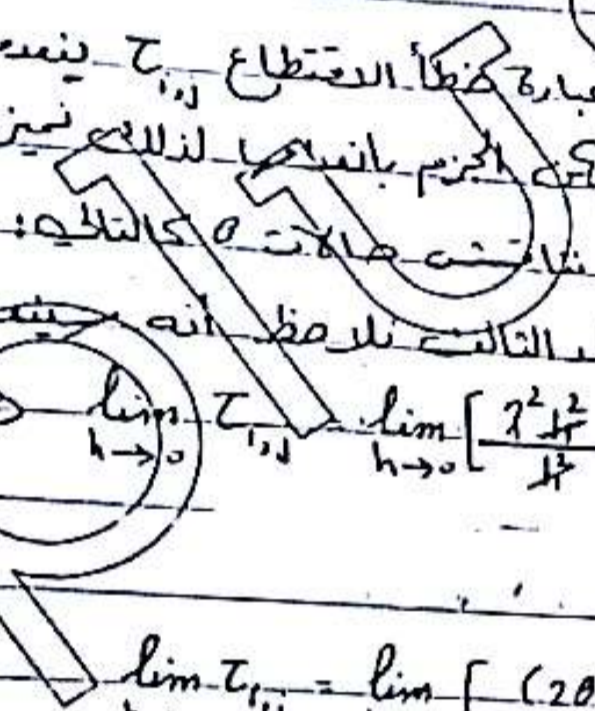 عبارة خطأ الاقتطاع τ_{i,j} ينعد
الجزم بانعدامها لذلك نميز
نناقش حالات θ كالتالي:
الثالث نلاحظ أنه
lim_{h→0} τ_{i,j} lim_{h→0} [ λ² h² / h²
lim τ_{i,j} = lim [ (2θ